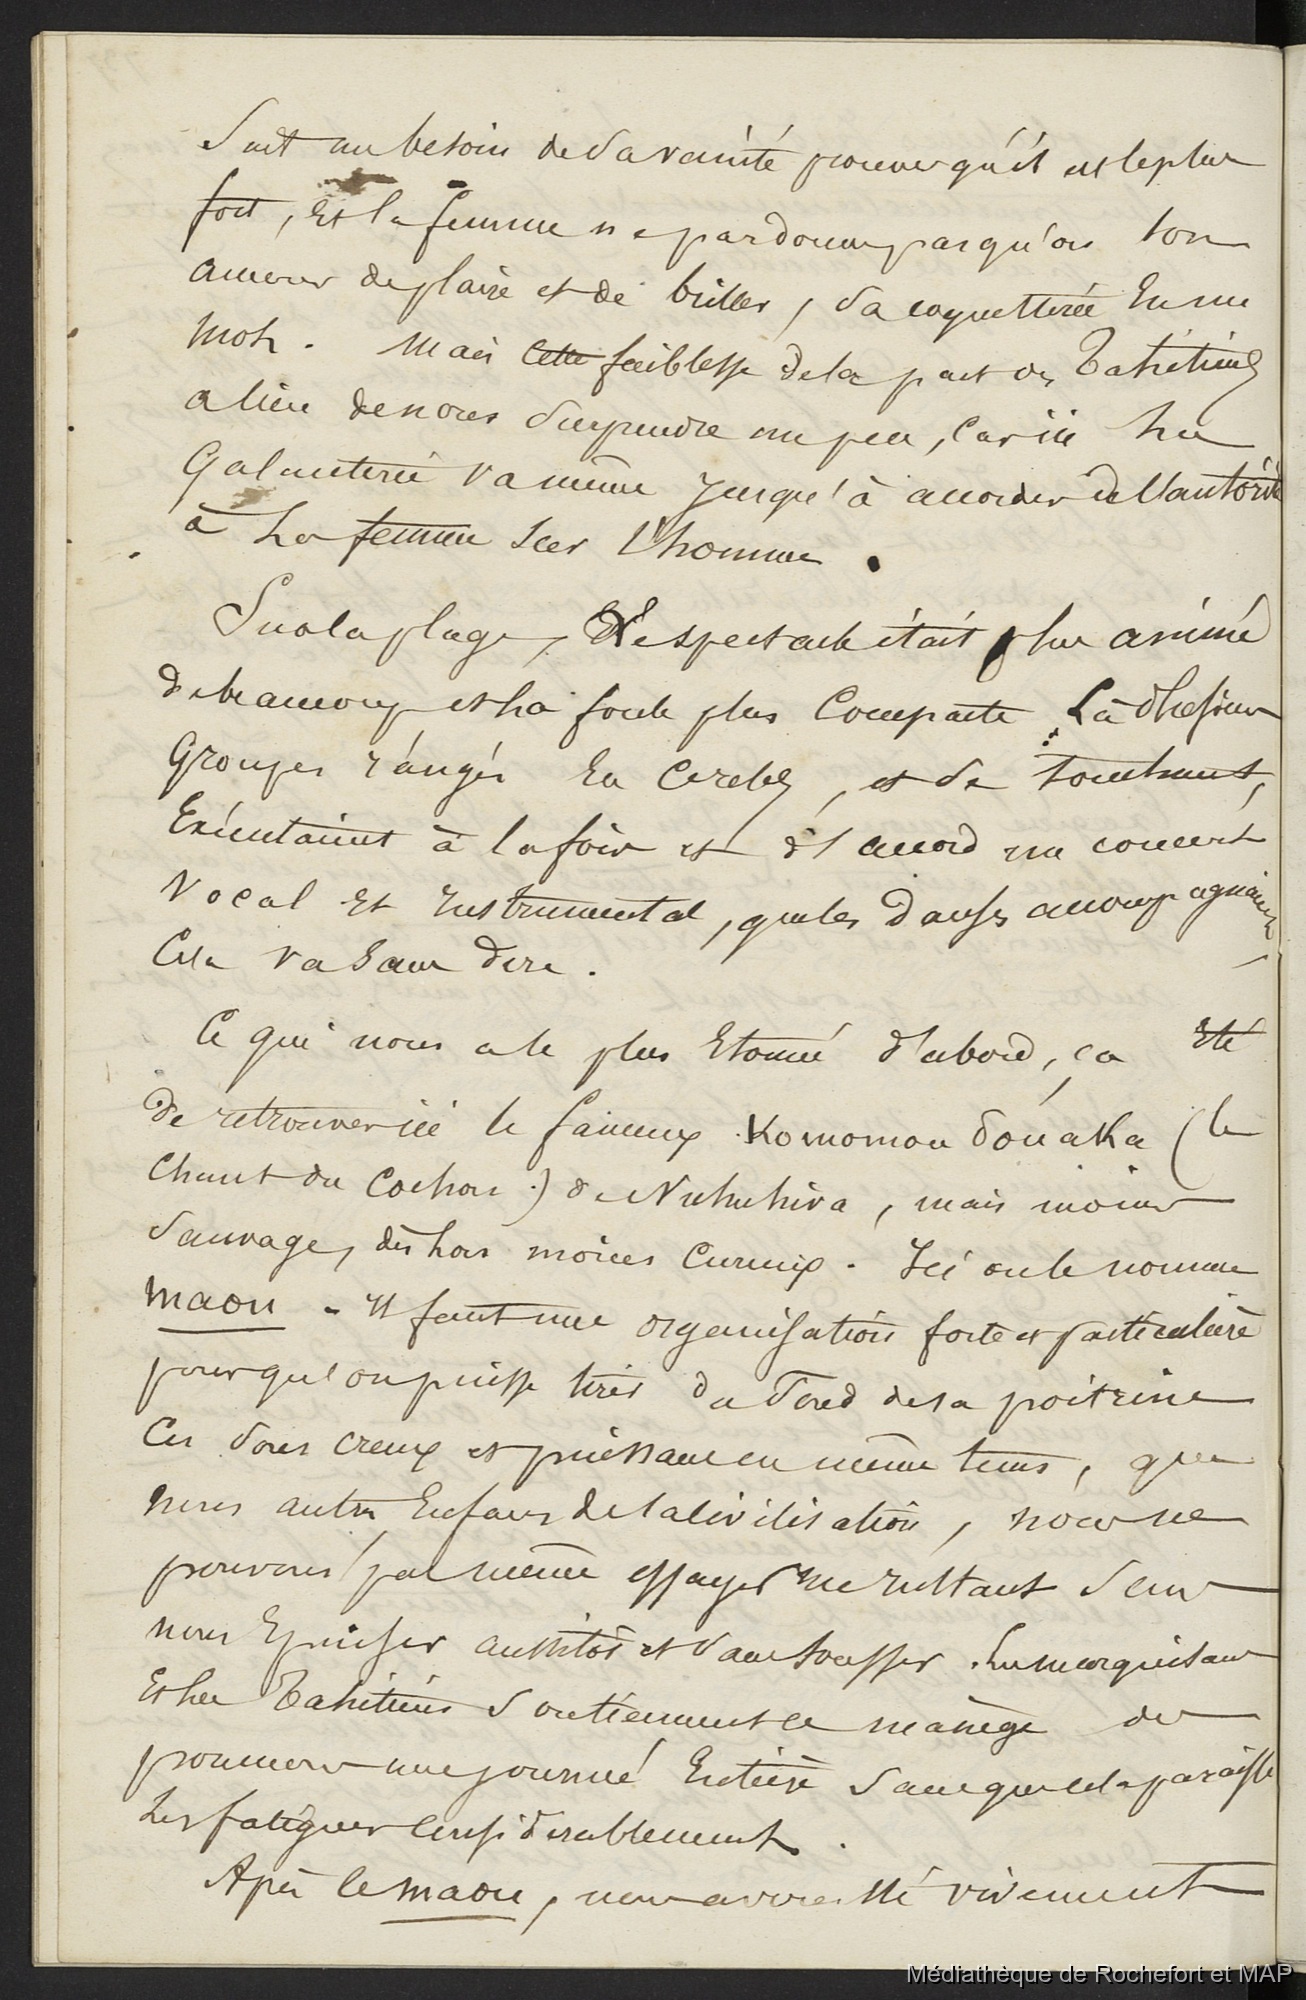 sent au besoin de sa vanité prouver qu'il est le plus
fort, et la femme ne pardonne pas qu'on
amour de plaire et de briller, sa coquetterie en un
mot. Mais cette faiblesse de la part des Tahitiens
a lieu de nous surprendre un peu, car ici la
Galanterie va même jusqu'à accorder de l'autorité
à la femme sur l'homme.
Sur la plage, le spectacle était plus animé
de beaucoup et la foule plus compacte. Là plusieurs
Groupes rangés en cercles, et se touchant,
Exécutaient à la fois et d'accord un concert
Vocal et instrumental, que les danses accompagnaient,
Cela va sans dire.
Ce qui nous a le plus Etonné d'abord, ça Eté
de retrouver ici le fameux Komomou douaka (le
chant du cochon) de Nukuhiva, mais moins
sauvage, dès lors moins curieux. Ici on le nomme
maou. Il faut une organisation forte et particulière
pour qu'on puisse tirer du fond de sa poitrine
Ces sons creux et puissans en même tems, que
nous autres Enfans de la civilisation, nous ne
pouvons pas même essayer une minute sans
nous Epuiser aussitôt et s'ans tousser. Les marquisans
Et les Tahitiens soutiennent ce manège des
poumons une journée Entière sans que cela paraisse
Les fatiguer considérablement.
Après le maou, nous avons été vivement
Médiathèque de Rochefort et MAP